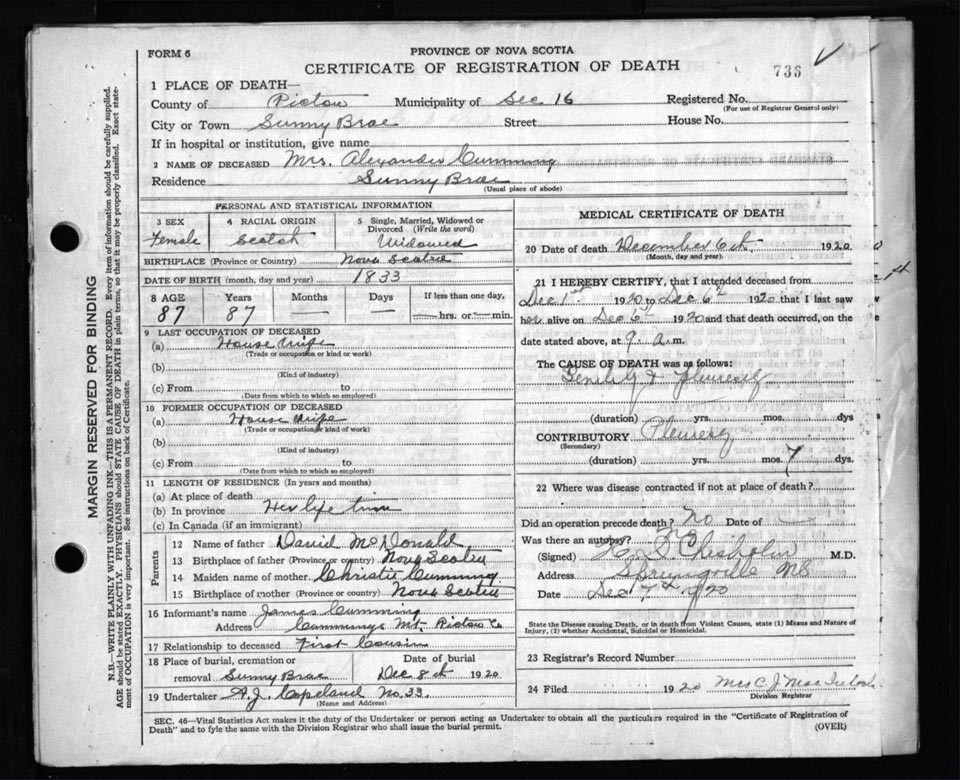 FORM 6
PROVINCE OF NOVA SCOTIA
CERTIFICATE OF REGISTRATION OF DEATH
736
1 PLACE OF DEATH—
County of Pictou Municipality of Sec 16 Registered No.
(For use of Registrar General only)
City or Town Sunny Brae Street House No.
If in hospital or institution, give name
2 NAME OF DECEASED Mrs. Alexander Cumming
Residence Sunny Brae
(Usual place of abode)
PERSONAL AND STATISTICAL INFORMATION
3 SEX Female
4 RACIAL ORIGIN Scotch
5 Single, Married, Widowed or Divorced (Write the word) Widowed
BIRTHPLACE (Province or Country) Nova Scotia
DATE OF BIRTH (month, day and year) 1833
8 AGE Years Months Days If less than one day,
87 87 hrs. or min.
9 LAST OCCUPATION OF DECEASED
(a) House Wife
(Trade or occupation or kind or work)
(b)
(Kind of industry)
(c) From to
(Date from which to which so employed)
10 FORMER OCCUPATION OF DECEASED
(a) House Wife
(Trade or occupation or kind of work)
(b)
(Kind of industry)
(c) From to
(Date from which to which so employed)
11 LENGTH OF RESIDENCE (In years and months)
(a) At place of death
(b) In province Her life time
(c) In Canada (if an immigrant)
Parents
12 Name of father David McDonald
13 Birthplace of father (Province or country) Nova Scotia
14 Maiden name of mother Christie Cumming
15 Birthplace of mother (Province or country) Nova Scotia
16 Informant's name James Cumming
Address Cummings Mt. Pictou Co
17 Relationship to deceased First Cousin
18 Place of burial, cremation or removal Sunny Brae
Date of burial Dec 8th 1920
19 Undertaker A.J. Copeland No. 33
(Name and Address)
MEDICAL CERTIFICATE OF DEATH
20 Date of death December 6th 1920
(Month, day and year)
21 I HEREBY CERTIFY, that I attended deceased from
Dec 1st 1920 to Dec 6th 1920 that I last saw
her alive on Dec 6th 1920 and that death occurred, on the
date stated above, at 9 a.m.
The CAUSE OF DEATH was as follows:
(duration) yrs. mos. dys
CONTRIBUTORY Pleurisy
(Secondary)
(duration) yrs. mos. 7 dys.
22 Where was disease contracted if not at place of death?
Did an operation precede death? No Date of
Was there an autopsy? No
(Signed) Chisholm M.D.
Address Springville NS
Date Dec 7th 1920
State the Disease causing Death, or in death from Violent Causes, state (1) Means and Nature of Injury, (2) whether Accidental, Suicidal or Homicidal.
23 Registrar's Record Number
24 Filed 1920 Mrs C J MacIntosh
Division Registrar
SEC. 46—Vital Statistics Act makes it the duty of the Undertaker or person acting as Undertaker to obtain all the particulars required in the "Certificate of Registration of
Death" and to fyle the same with the Division Registrar who shall issue the burial permit.
(OVER)
MARGIN RESERVED FOR BINDING
N.B.—WRITE PLAINLY WITH UNFADING INK—THIS IS A PERMANENT RECORD. Every item of information should be carefully supplied.
AGE should be stated EXACTLY. PHYSICIANS should STATE CAUSE OF DEATH in plain terms, so that it may be properly classified. Exact statement of OCCUPATION is very important. See instructions on back of Certificate.